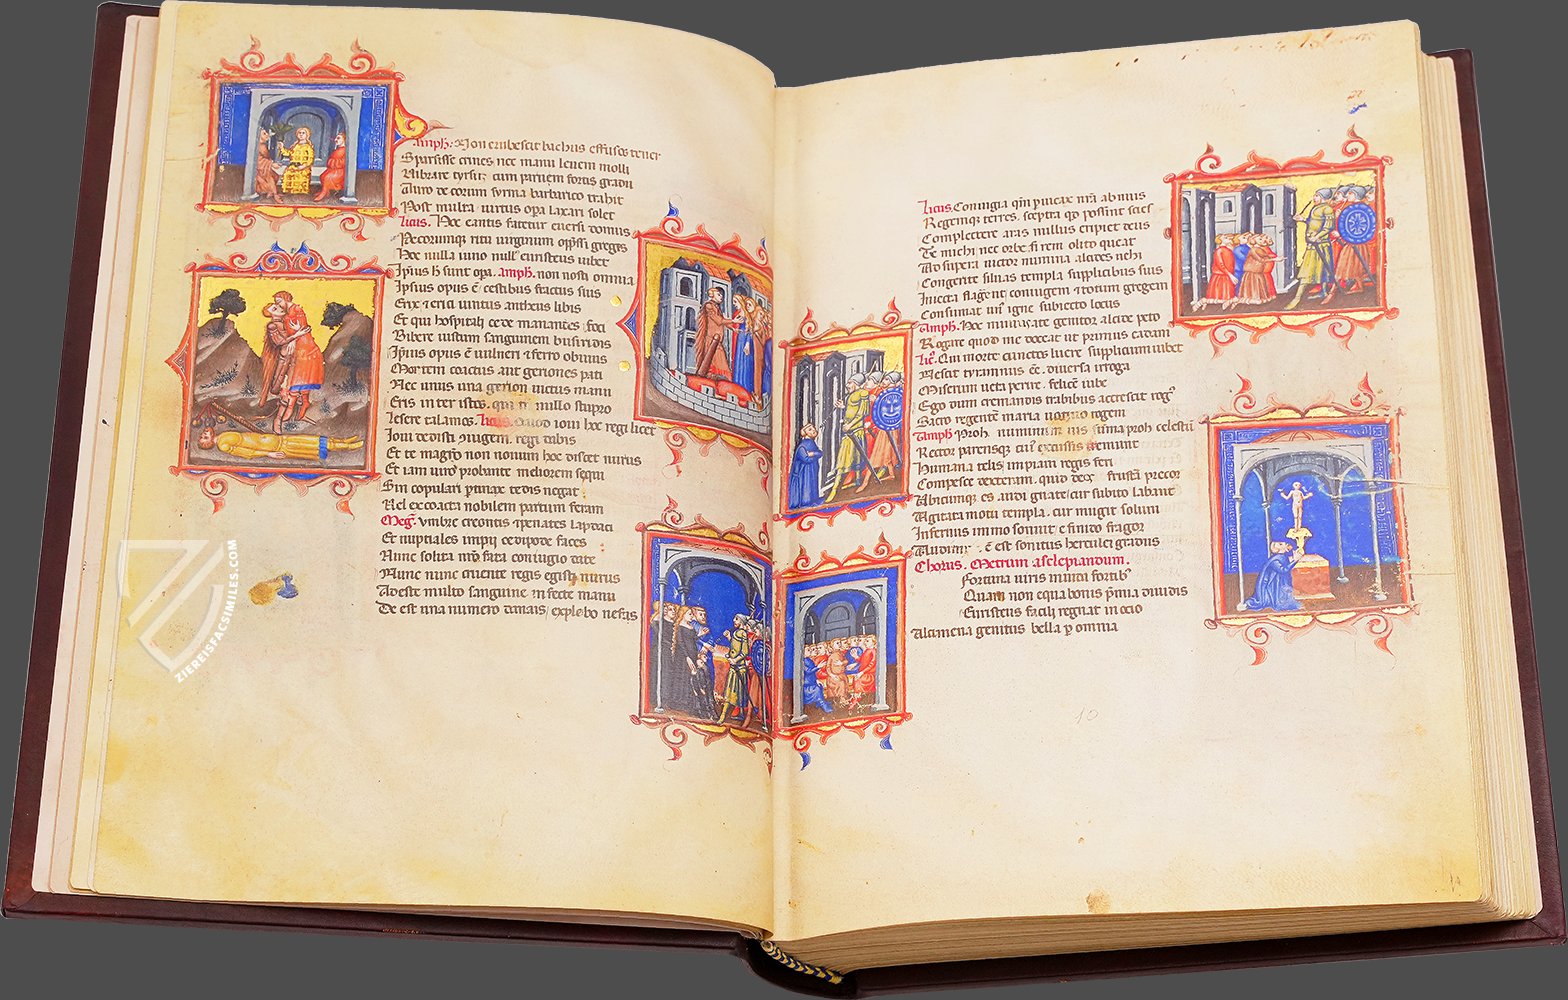 Amph. Non erubescit bachus effusos tener
Sparsisse crines nec manu leuem molli
Vibrare tyrsum cum parum fortis gradu
Auro decorum syrma barbarico trahit
Post multa uirtus opa laxari solet
licus. Hoc
Pecorumq ritu uirginum oppssi greges
Hoc nulla iuno null euristeus iubet
Ipsius h sunt opa. Amph. non nosti omnia
Ipsius opus e cestibus fractus suis
Erix
Et qui hospitali cede manantes foci
Bibere iustum sanguinem busiridis
Ipsius opus e uulneri ferro obuius
Mortem coactus ant geriones pati
Nec unus una gerion uictus manu
Eris inter istos
lesere talamos. licus. Quod ioui hoc regi licet
Ioui dedisti
Et te magro non nouum hoc discet nurus
Et iam uiro probante meliorem sequi
Sin copulari ptinax tedis negat
Vel ex coacta nobilem partum feram
Meg. Vmbre creontis penates lapdaci
Et nuptiales impii oedipode faces
Nunc solita nro fata coniugio date
Nunc nunc cruente regis egisti nurus
Adeste multo sanguine infecte manu
De est una numero danais explebo nefas
licus. Coniugia qm pinax nra abnuis
Regemq terres. sceptra qd possint scies
Complectere aras nullus eripiet deus
Te michi nec orbe si rem olito queat
Ad supera uictor numina alcides uehi
Congerite siluas templa supplicibus suis
Iniecta flagrent coniugem totum gregem
Consumat un igne subiecto locus
Amph. Hoc munus a te genitor alcide peto
Rogare quod me deceat ut primus cadam
lic. Qui morte cunctos luere supplicium iubet
Nescit tyrannus ee. diuersa irroga
Miserum ueta perire. felice iube
Ego dum cremandis trabibus accrescit rog
Sacro regente maria uouuo rogem
Amph. Proh numinum uis suma proh celestu
Rector parensq cui excussis tremunt
Humana telis impiam regis feri
Compesce dexteram. quid deos frustra precor
Vbicumq es audi gnate cur subito labant
Agitata motu templa. cur mugit solum
Infernus imo sonuit e fundo fragor
Audimur e est sonitus herculei gradus
Chorus. Metrum asclepiandum.
Fortuna uiris inuida fortib
Quam non equa bonis pmia diuidis
Euristeus facili regnat in ocio
Alcmena genitus bella p omnia
10
ZIEREISFACSIMILES.COM